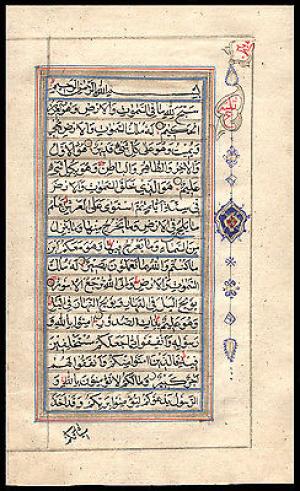 بسم الله الرحمن الرحيم
سبح لله ما في السموات والارض وهو العزيز
الحكيم له ملك السموات والارض يحي
ويميت وهو على كل شئ قدير هو الاول
والاخر والظاهر والباطن وهو بكل شئ
عليم هو الذي خلق السموات والارض
في ستة ايام ثم استوى على العرش يعلم
ما يلج في الارض وما يخرج منها وما ينزل
من السماء وما يعرج فيها وهو معكم اين
ما كنتم والله بما تعملون بصير له ملك
السموات والارض والى الله ترجع الامور
يولج الليل في النهار ويولج النهار في الليل
وهو عليم بذات الصدور امنوا بالله و
رسوله وانفقوا مما جعلكم مستخلفين
فيه فالذين امنوا منكم وانفقوا لهم
اجر كبير وما لكم لا تؤمنون بالله و
الرسول يدعوكم لتؤمنوا بربكم وقد اخذ